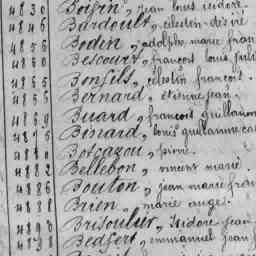 4830 Boisin, jean louis isidore
4846 Bardoult, célestin désiré
4855 Bodin, adolphe marie fran
4858 Bescourt, françois louis juli
4865 Bonfils, célestin françois.
4855 Bernard, étienne jean,
4869 Buard, françois guillaume
4875 Bisnard, louis guillaume ca
4880 Botcazou, pierre.
4882 Bellebon, vincent marie.
4886 Bouton, jean marie fran
4888 Brien, marie ange.
4890 Brisoulur, isidore jean
4898 Bedfert, emmanuel jean f